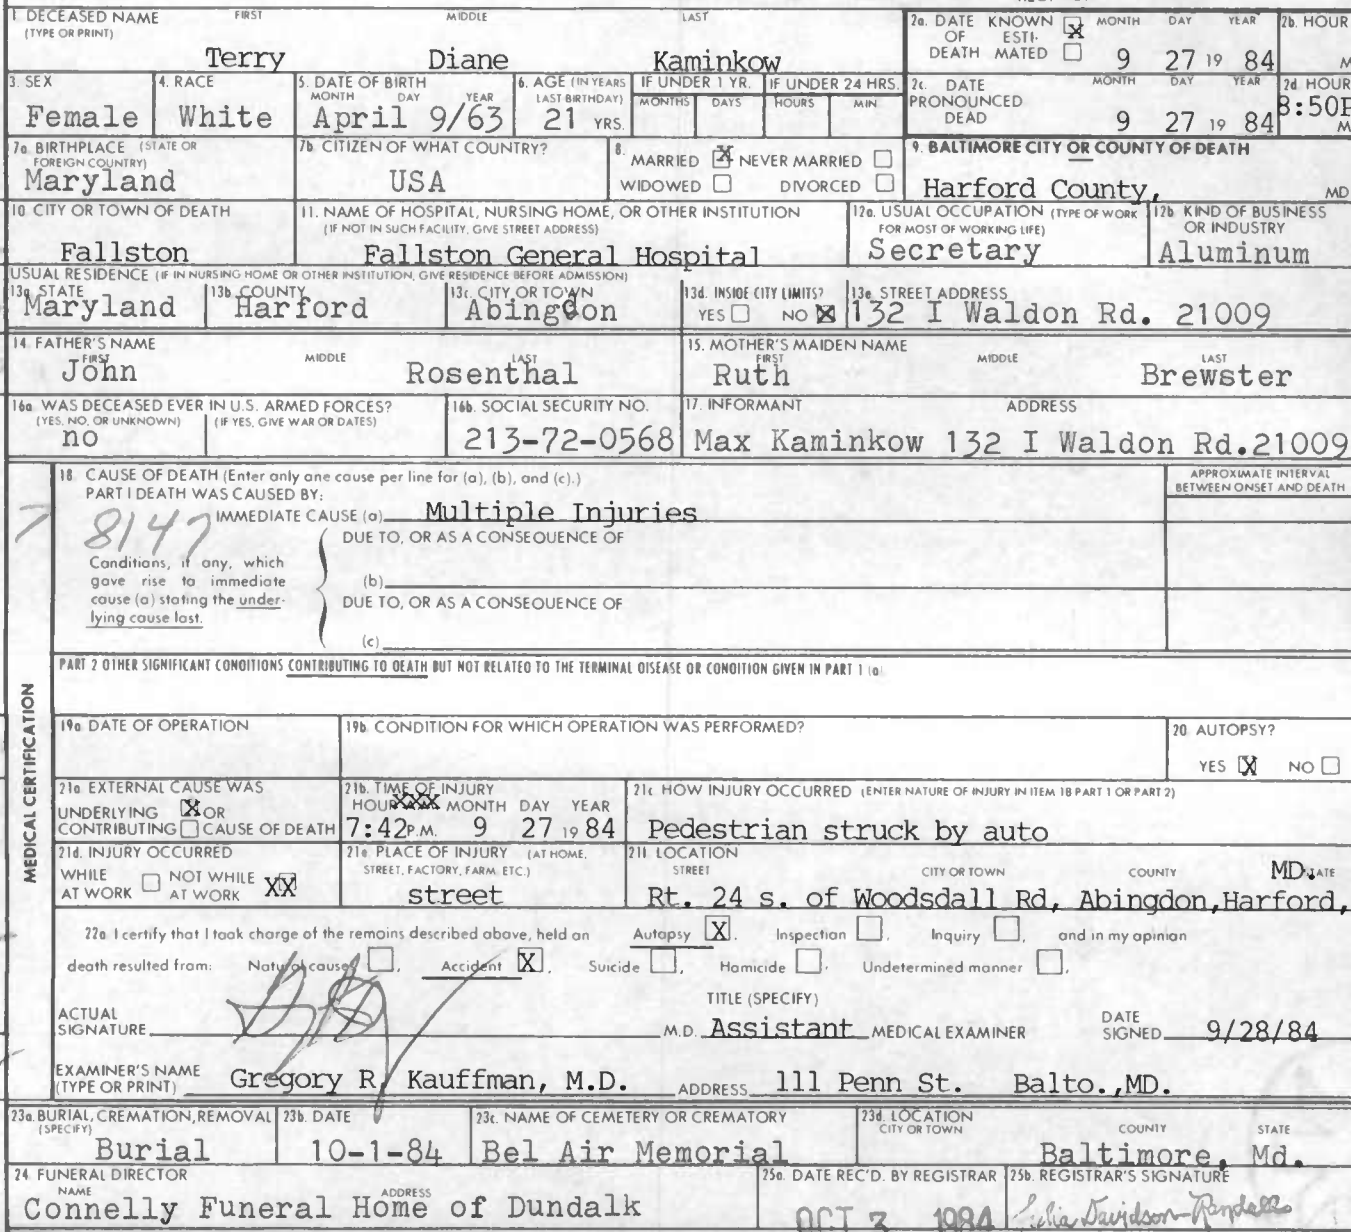 1 DECEASED NAME FIRST MIDDLE LAST
(TYPE OR PRINT)
Terry Diane Kaminkow
2a. DATE OF DEATH KNOWN ☒ ESTI-MATED ☐ MONTH DAY YEAR
9 27 19 84
2b. HOUR
M
3. SEX
Female
4. RACE
White
5. DATE OF BIRTH
MONTH DAY YEAR
April 9/63
6. AGE (IN YEARS
LAST BIRTHDAY)
21 YRS.
IF UNDER 1 YR.
MONTHS DAYS
IF UNDER 24 HRS.
HOURS MIN
2c. DATE PRONOUNCED DEAD MONTH DAY YEAR
9 27 19 84
2d HOUR
8:50P
M
7a BIRTHPLACE (STATE OR
FOREIGN COUNTRY)
Maryland
7b. CITIZEN OF WHAT COUNTRY?
USA
8.
MARRIED ☒ NEVER MARRIED ☐
WIDOWED ☐ DIVORCED ☐
9. BALTIMORE CITY OR COUNTY OF DEATH
Harford County, MD
10 CITY OR TOWN OF DEATH
Fallston
11. NAME OF HOSPITAL, NURSING HOME, OR OTHER INSTITUTION
(IF NOT IN SUCH FACILITY, GIVE STREET ADDRESS)
Fallston General Hospital
12a. USUAL OCCUPATION (TYPE OF WORK
FOR MOST OF WORKING LIFE)
Secretary
12b. KIND OF BUSINESS
OR INDUSTRY
Aluminum
USUAL RESIDENCE (IF IN NURSING HOME OR OTHER INSTITUTION, GIVE RESIDENCE BEFORE ADMISSION)
13a STATE
Maryland
13b COUNTY
Harford
13c. CITY OR TOWN
Abingdon
13d. INSIDE CITY LIMITS?
YES ☐ NO ☒
13e STREET ADDRESS
132 I Waldon Rd. 21009
14 FATHER'S NAME
FIRST MIDDLE LAST
John Rosenthal
15. MOTHER'S MAIDEN NAME
FIRST MIDDLE LAST
Ruth Brewster
16a WAS DECEASED EVER IN U.S. ARMED FORCES?
(YES, NO, OR UNKNOWN) (IF YES, GIVE WAR OR DATES)
no
16b. SOCIAL SECURITY NO.
213-72-0568
17. INFORMANT ADDRESS
Max Kaminkow 132 I Waldon Rd.21009
MEDICAL CERTIFICATION
18 CAUSE OF DEATH (Enter only one cause per line for (a), (b), and (c).)
PART I DEATH WAS CAUSED BY:
APPROXIMATE INTERVAL
BETWEEN ONSET AND DEATH
IMMEDIATE CAUSE (a) Multiple Injuries
7 8147
DUE TO, OR AS A CONSEQUENCE OF
Conditions, if any, which
gave rise to immediate
cause (a) stating the under-
lying cause last.
(b)
DUE TO, OR AS A CONSEQUENCE OF
(c)
PART 2 OTHER SIGNIFICANT CONDITIONS CONTRIBUTING TO DEATH BUT NOT RELATED TO THE TERMINAL DISEASE OR CONDITION GIVEN IN PART 1 (a)
19a DATE OF OPERATION
19b CONDITION FOR WHICH OPERATION WAS PERFORMED?
20 AUTOPSY?
YES ☒ NO ☐
21a EXTERNAL CAUSE WAS
UNDERLYING ☒ OR
CONTRIBUTING ☐ CAUSE OF DEATH
21b. TIME OF INJURY
HOUR XXX MONTH DAY YEAR
7:42 P.M. 9 27 19 84
21c HOW INJURY OCCURRED (ENTER NATURE OF INJURY IN ITEM 18 PART 1 OR PART 2)
Pedestrian struck by auto
21d. INJURY OCCURRED
WHILE AT WORK ☐ NOT WHILE AT WORK XX
21e PLACE OF INJURY (AT HOME,
STREET, FACTORY, FARM, ETC.)
street
21f LOCATION
STREET CITY OR TOWN COUNTY STATE
MD.
Rt. 24 s. of Woodsdall Rd, Abingdon,Harford,
22a I certify that I took charge of the remains described above, held an Autopsy ☒, Inspection ☐, Inquiry ☐, and in my opinion
death resulted from: Natural causes ☐, Accident ☒, Suicide ☐, Homicide ☐, Undetermined manner ☐,
ACTUAL
SIGNATURE
TITLE (SPECIFY)
M.D. Assistant MEDICAL EXAMINER
DATE
SIGNED 9/28/84
EXAMINER'S NAME
(TYPE OR PRINT) Gregory R. Kauffman, M.D. ADDRESS 111 Penn St. Balto.,MD.
23a. BURIAL, CREMATION, REMOVAL
(SPECIFY)
Burial
23b. DATE
10-1-84
23c. NAME OF CEMETERY OR CREMATORY
Bel Air Memorial
23d. LOCATION
CITY OR TOWN COUNTY STATE
Baltimore, Md.
24 FUNERAL DIRECTOR
NAME ADDRESS
Connelly Funeral Home of Dundalk
25a. DATE REC'D. BY REGISTRAR
OCT 3 1984
25b. REGISTRAR'S SIGNATURE
Julia Davidson-Randall